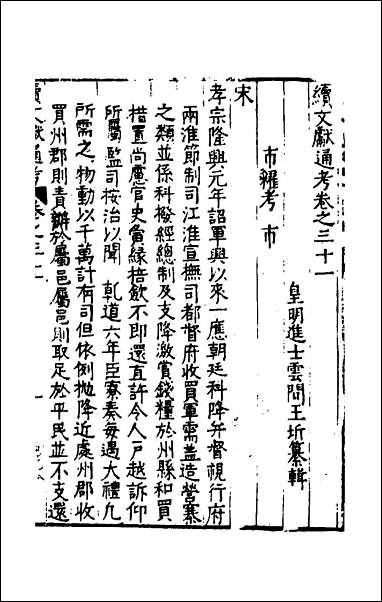 續文獻通考卷之三十一
皇明進士雲間王圻纂輯
市糴考 市
宋
孝宗隆興元年詔軍興以來一應朝廷科降年督視行府
兩淮節制司江淮宣撫司都督府收買軍需蓋造營寨
之類並係科撥經總制及支降激賞錢糧於州縣和買
措置尚慮官吏夤緣掊斂不即還直許令人戶越訴仰
所屬監司按治以聞 乹道六年臣寮奏每遇大禮九
所需之物動以千萬計有司但依例拋降近處州郡收
買州郡則責辦於屬邑屬邑則取足於平民並不支還